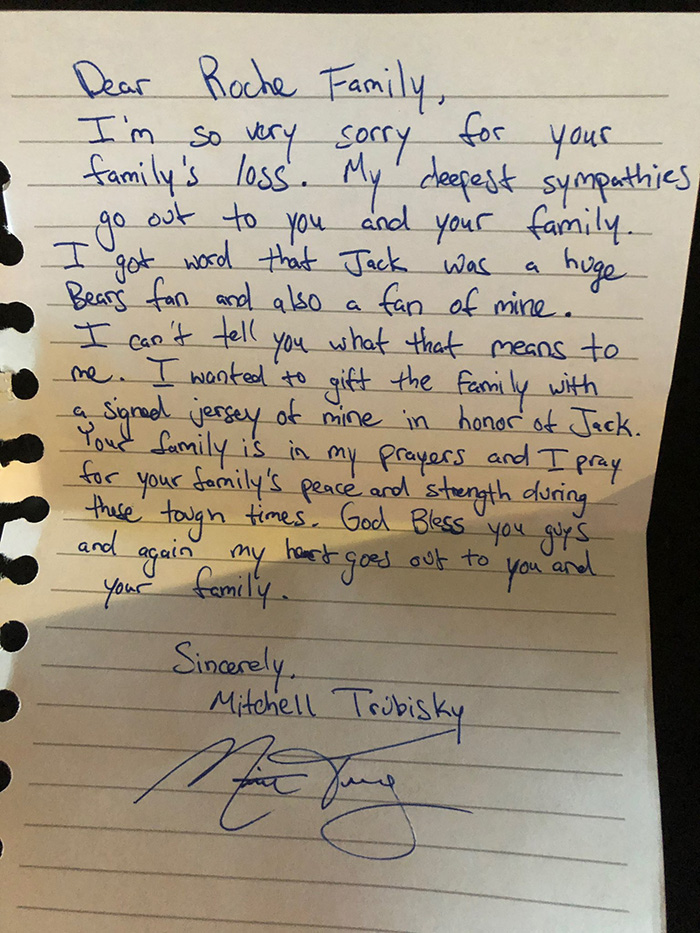 Dear Roche Family,
I'm so very sorry for your
family's loss. My deepest sympathies
go out to you and your family.
I got word that Jack was a huge
Bears fan and also a fan of mine.
I can't tell you what that means to
me. I wanted to gift the family with
a signed jersey of mine in honor of Jack.
Your family is in my prayers and I pray
for your family's peace and strength during
these tough times. God Bless you guys
and again my heart goes out to you and
your family.
Sincerely,
Mitchell Trubisky